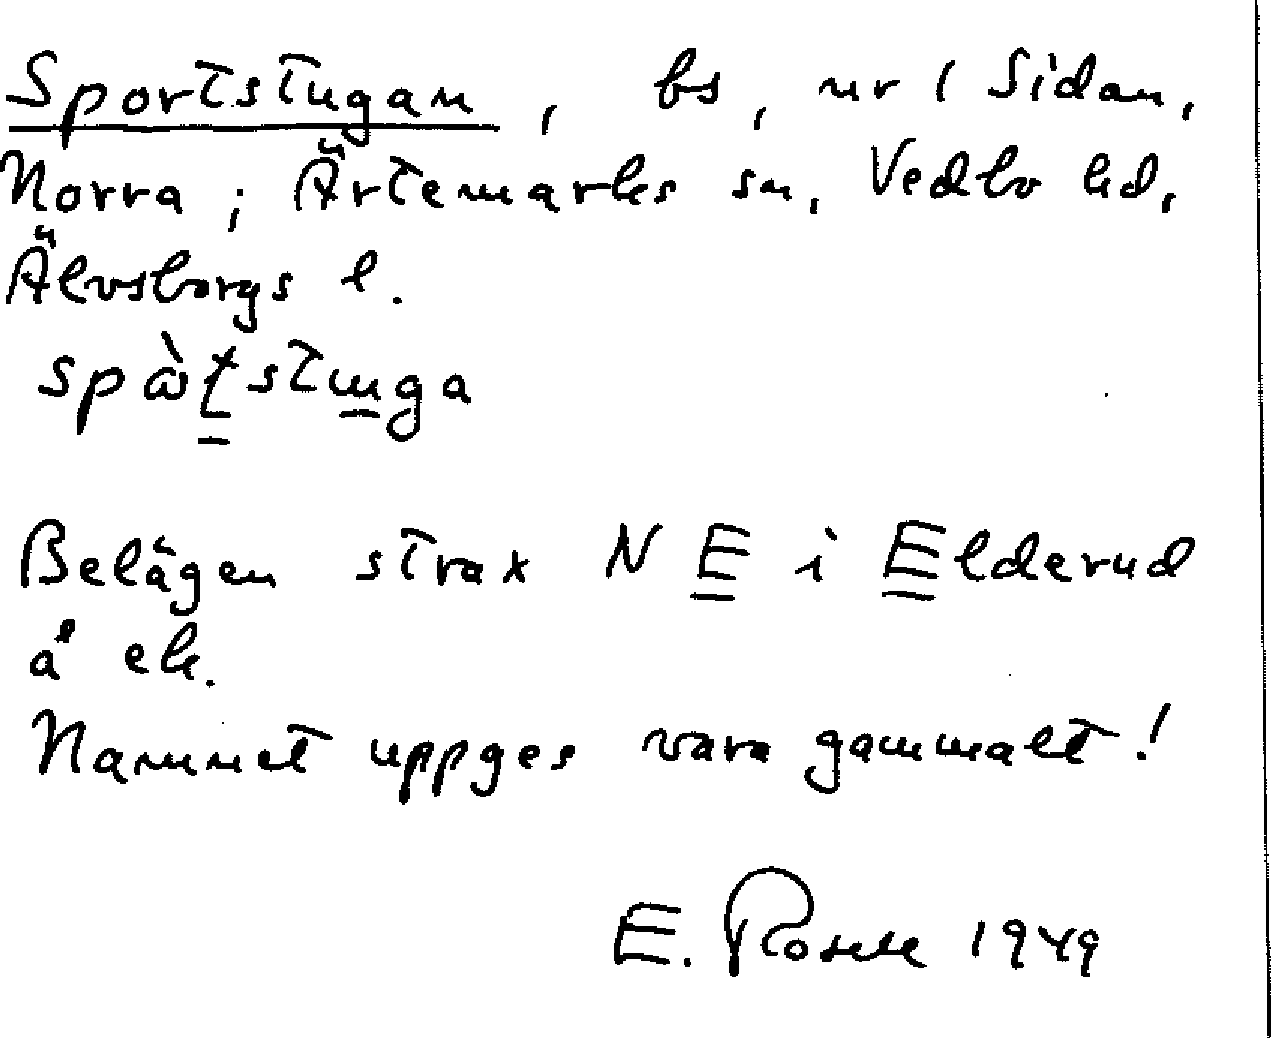 Sportstugan, bs, nr 1 Sidan,
Norra; Ärtemarks sn, Vedbo hd,
Älvsborgs l.
Belägen strax N E i Elderud
å ek.
Namnet uppges vara gammalt!
E. 1949